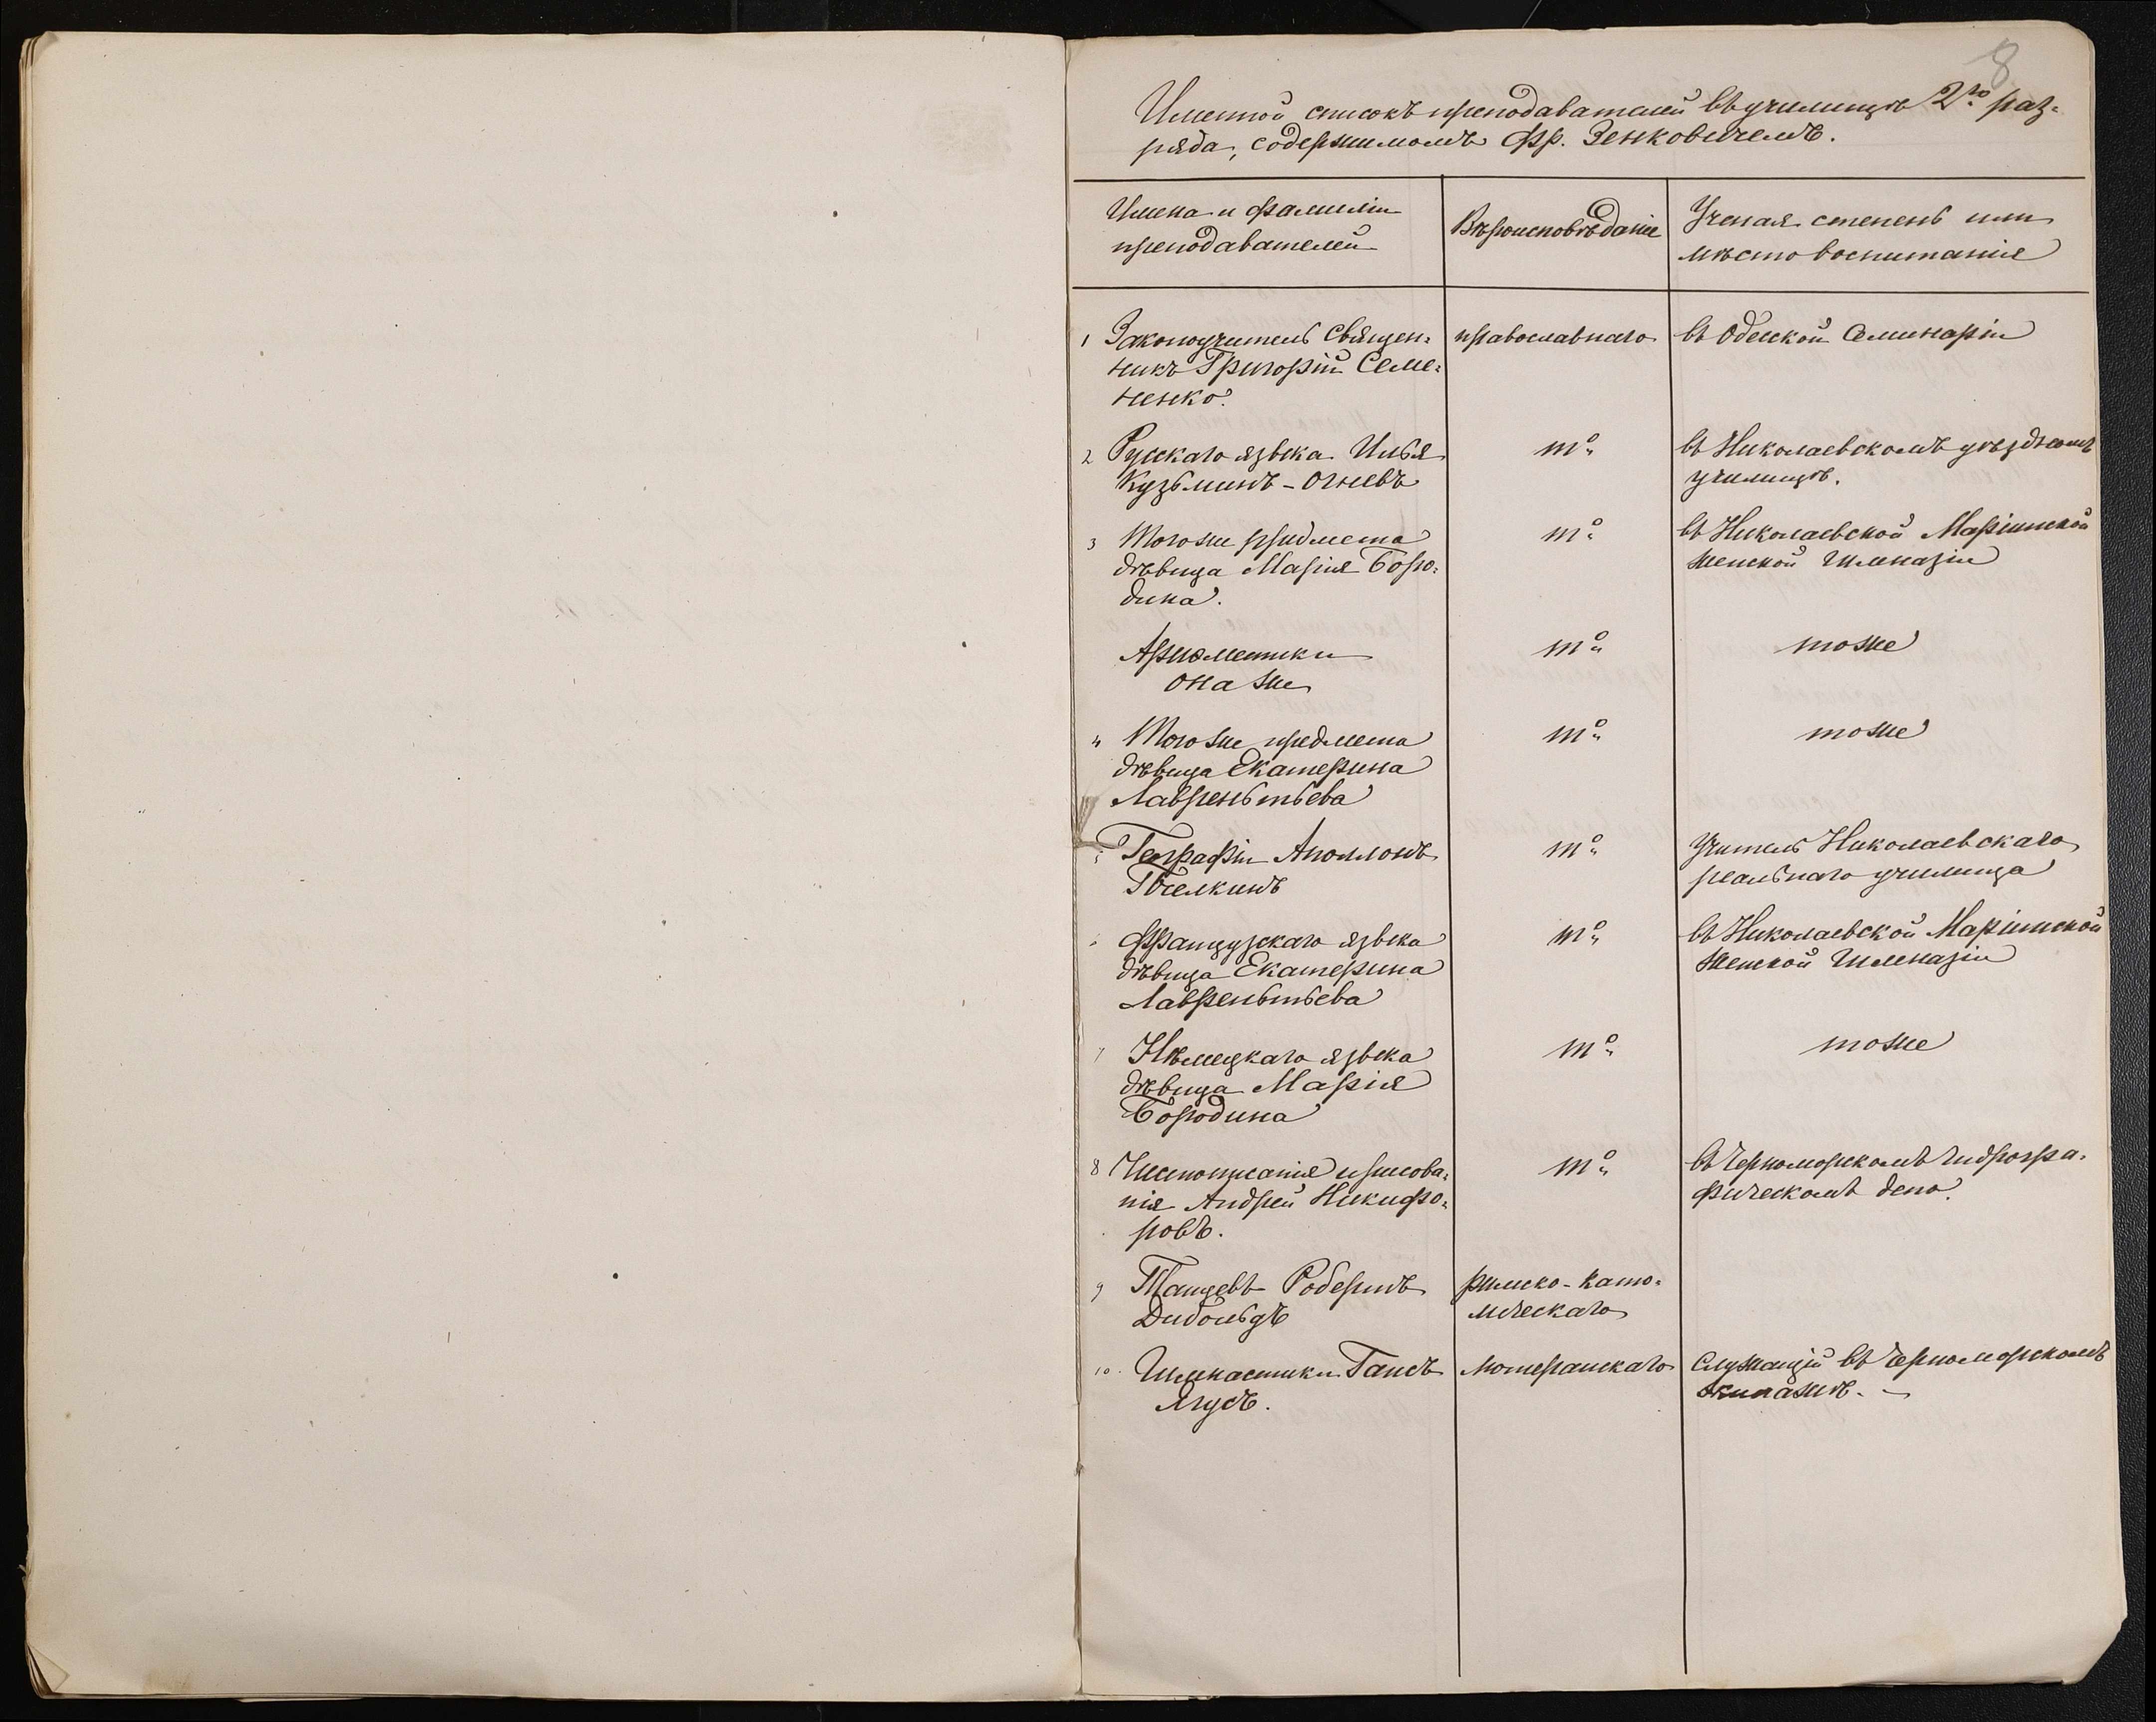 8
Именной списокъ преподавателей въ училищѣ 2го раз-
ряда, содержимомъ Фр. Зенковичемъ.
Имена и фамиліи
преподавателей
Вѣроисповѣданіе
Ученая степень или
мѣсто воспитанія
1 Законоучитель Священ-
никъ Григорій Семе-
ненко.
православнаго
въ Одесской Семинаріи
2 Русскаго языка Илья
Кузьминъ-Огневъ
то
въ Николаевскомъ уѣздномъ
училищѣ.
3 Того же предмета
дѣвица Марія Боро-
дина.
то
въ Николаевской Маріинской
женской Гимназіи
Ариѳметики
она же
то
тоже
4 Того же предмета
дѣвица Екатерина
Лаврентьева
то
тоже
5 Географіи Аполлонъ
то
Учитель Николаевскаго
реальнаго училища
6 Французскаго языка
дѣвица Екатерина
Лаврентьева
то
въ Николаевской Маріинской
Женской Гимназіи
7 Нѣмецкаго языка
дѣвица Марія
Бородина
то
тоже
8 Чистописанія и рисова-
нія Андрей Никифо-
ровъ.
то
въ Черноморскомъ гидрогра-
фическомъ депо.
9 Танцевъ Робертъ
римско-като-
лическаго
10. Гимнастики Гансъ
Ягусъ.
лютеранскаго
Служащій въ Черноморскомъ
экипажѣ.